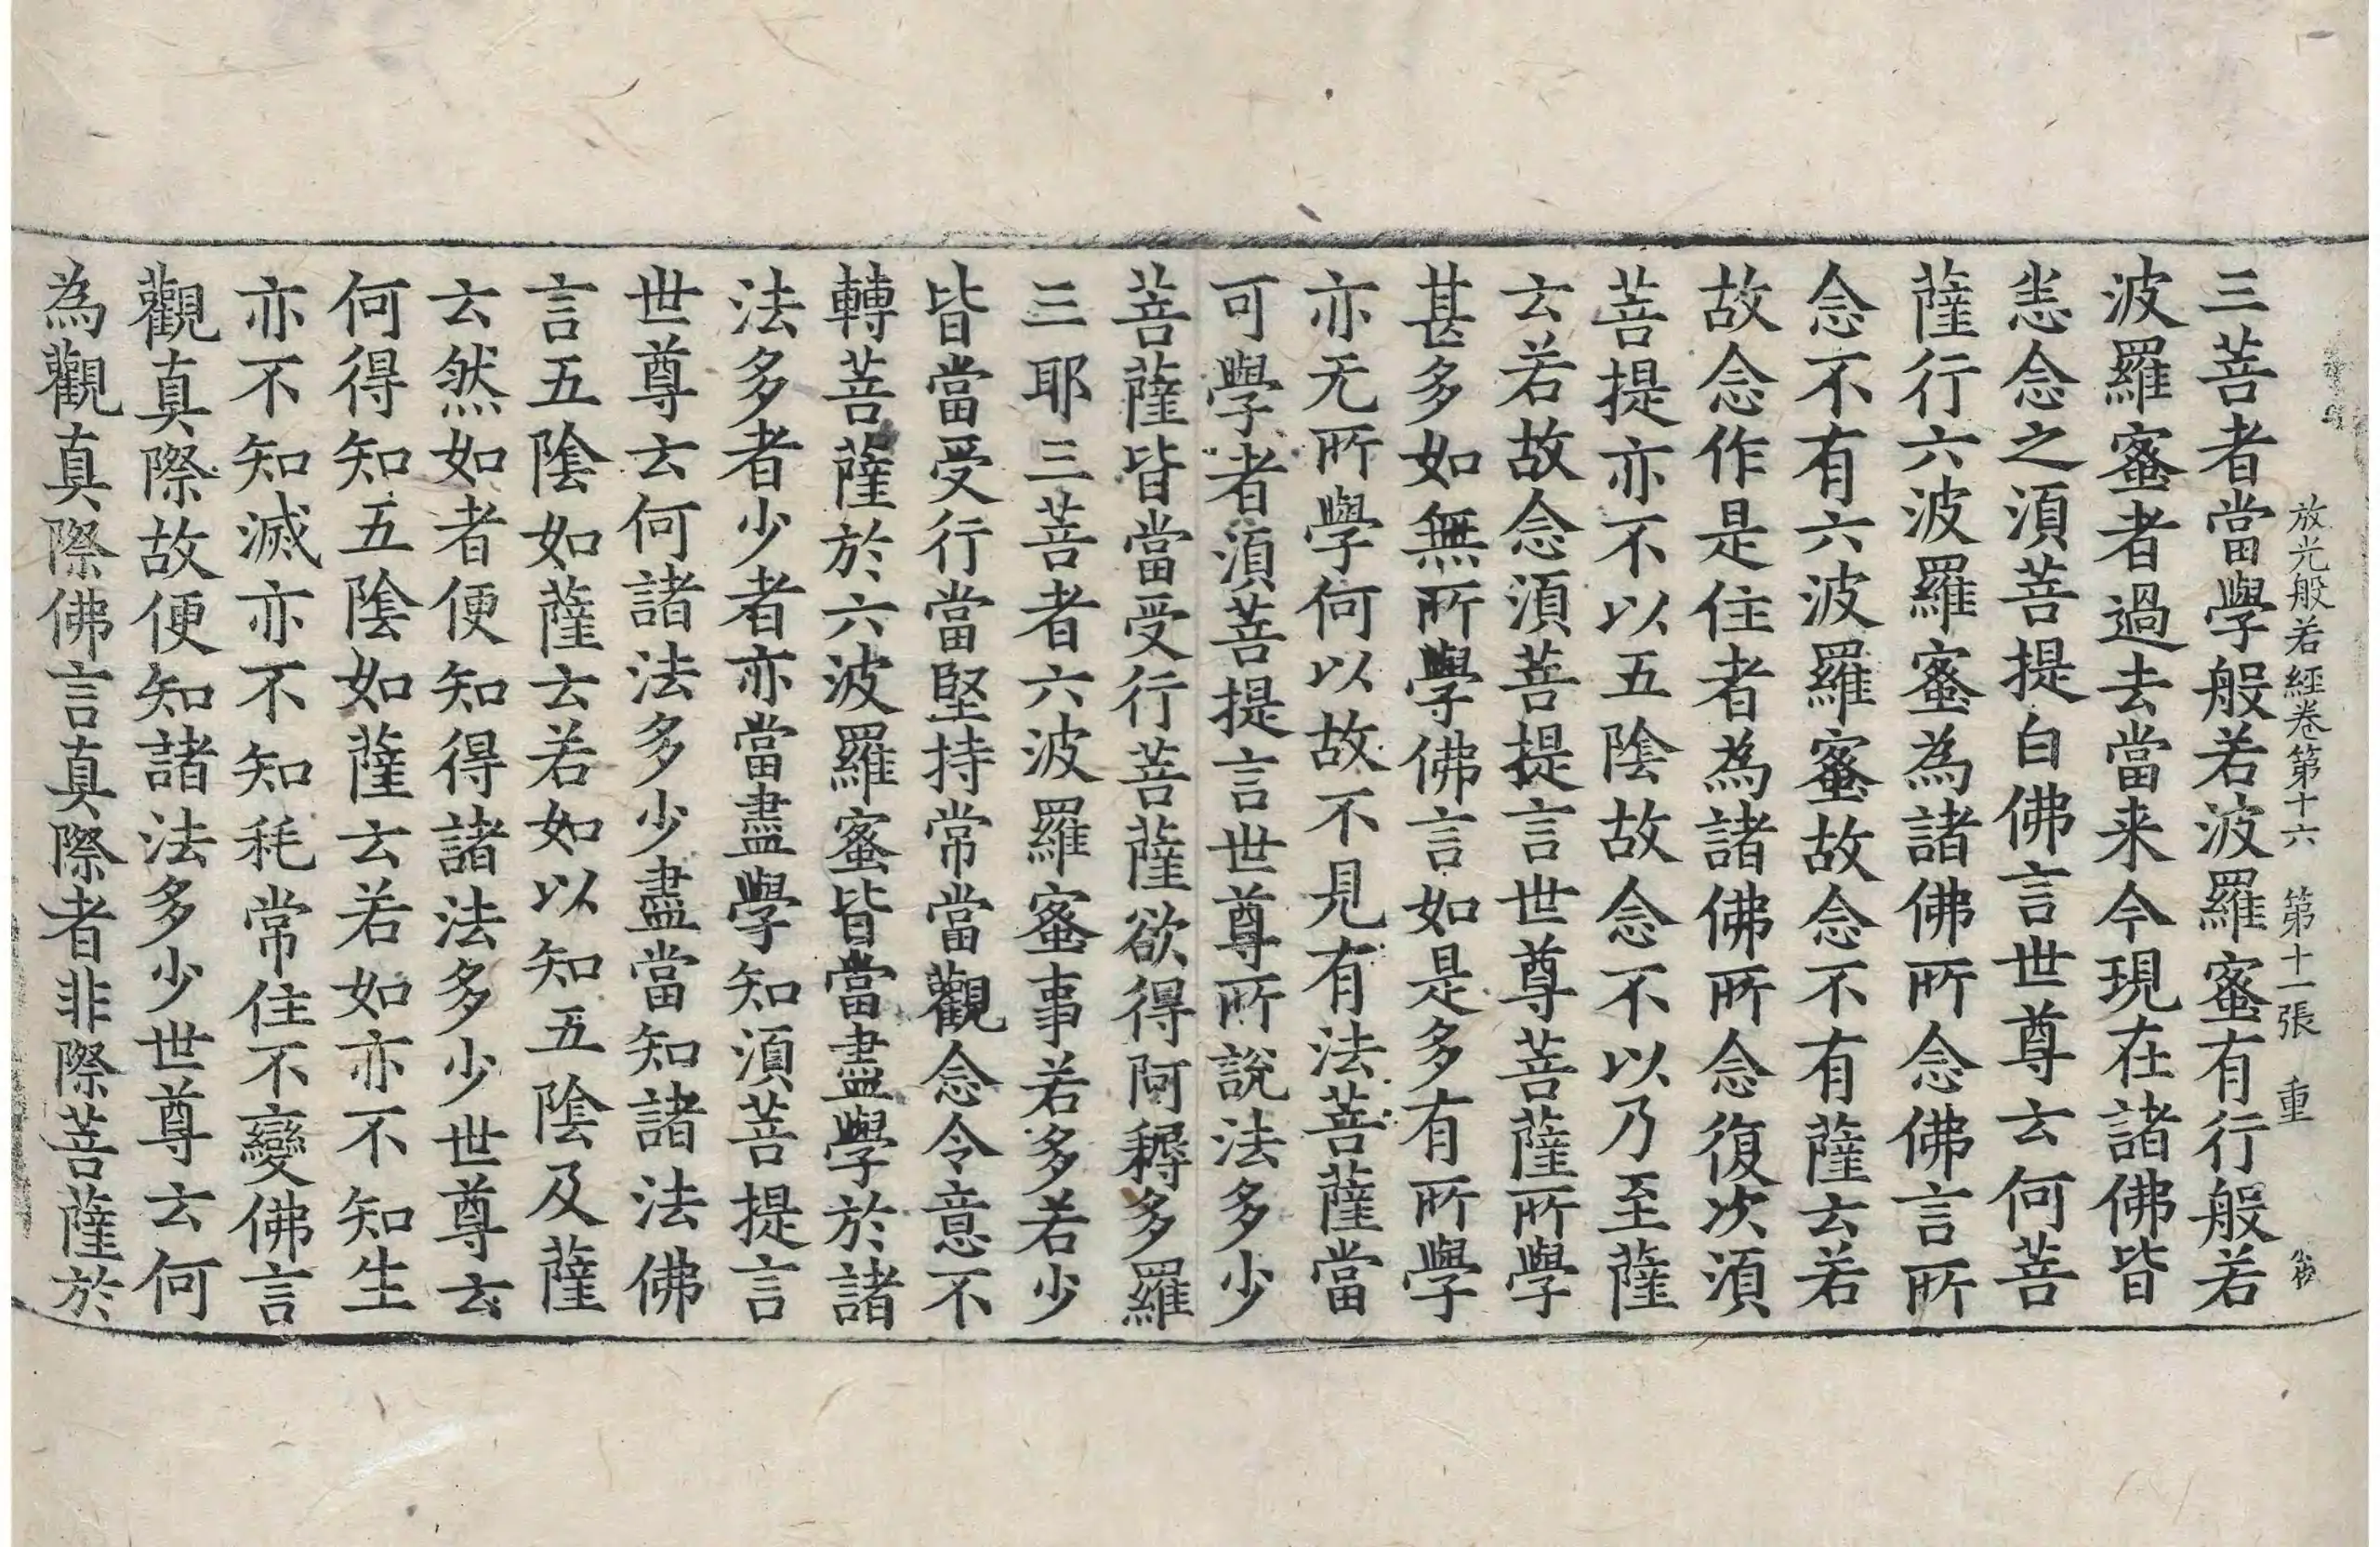 放光般若經卷第十六 第十一張 重
三菩者當學般若波羅蜜有行般若
波羅蜜者過去當来今現在諸佛皆
恙念之須菩提白佛言世尊云何菩
薩行六波羅蜜為諸佛所念佛言所
念不有六波羅蜜故念不有薩云若
故念作是住者為諸佛所念復次須
菩提亦不以五陰故念不以乃至薩
云若故念須菩提言世尊菩薩所學
甚多如無所學佛言如是多有所學
亦无所學何以故不見有法菩薩當
可學者須菩提言世尊所說法多少
菩薩皆當受行菩薩欲得阿耨多羅
三耶三菩者六波羅蜜事若多若少
皆當受行當堅持常當觀念令意不
轉菩薩於六波羅蜜皆當盡學於諸
法多者少者亦當盡學知須菩提言
世尊云何諸法多少盡當知諸法佛
言五陰如薩云若如以知五陰及薩
云然如者便知得諸法多少世尊云
何得知五陰如薩云若如亦不知生
亦不知滅亦不知秏常住不變佛言
觀真際故便知諸法多少世尊云何
為觀真際佛言真際者非際菩薩於